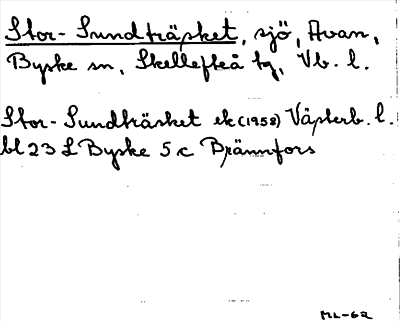 Stor-Sundträsket, sjö, Avan,
Byske sn, Skellefteå tg, Vb. l.
Stor-Sundträsket ek (1958) Västerb. l.
bl 23 L Byske 5 c Brännfors
ML-62